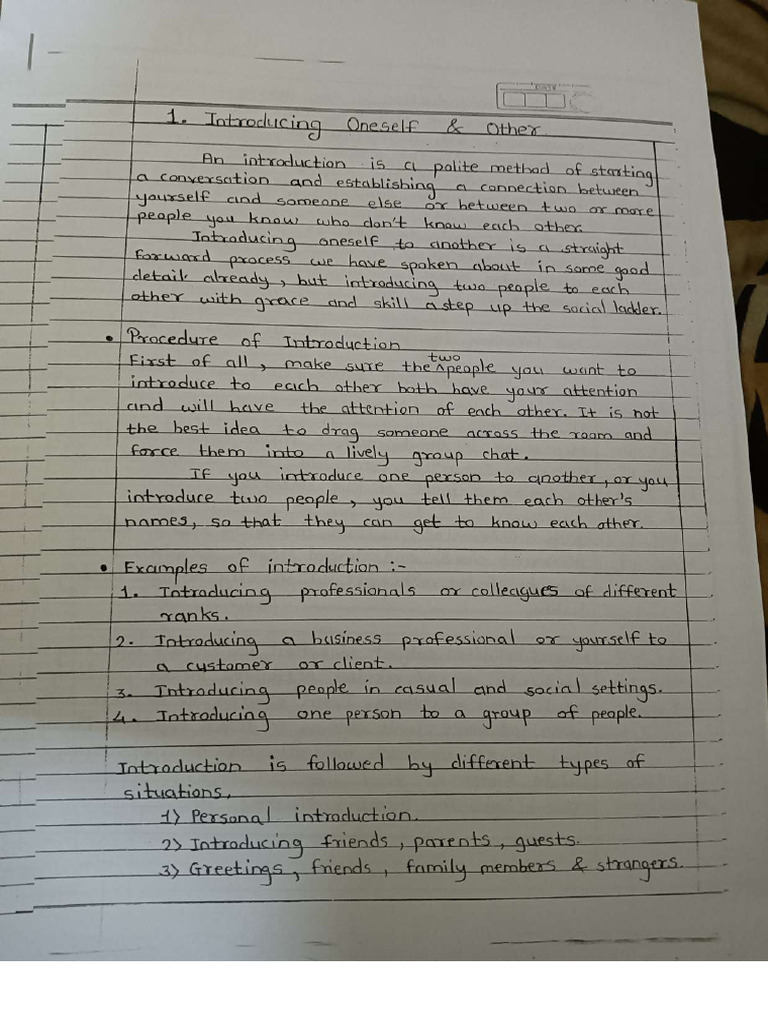 DATE
1. Introducing Oneself & Other
An introduction is a polite method of starting
a conversation and establishing a connection between
yourself and someone else or between two or more
people you know who don't know each other.
Introducing oneself to another is a straight
forward process we have spoken about in some good
detail already, but introducing two people to each
other with grace and skill a step up the social ladder.
• Procedure of Introduction
First of all, make sure the two people you want to
introduce to each other both have your attention
and will have the attention of each other. It is not
the best idea to drag someone across the room and
force them into a lively group chat.
If you introduce one person to another, or you
introduce two people, you tell them each other's
names, so that they can get to know each other.
• Examples of introduction :-
1. Introducing professionals or colleagues of different
ranks.
2. Introducing a business professional or yourself to
a customer or client.
3. Introducing people in casual and social settings.
4. Introducing one person to a group of people.
Introduction is followed by different types of
situations,
1) Personal introduction.
2) Introducing friends, parents, guests.
3) Greetings, friends, family members & strangers.